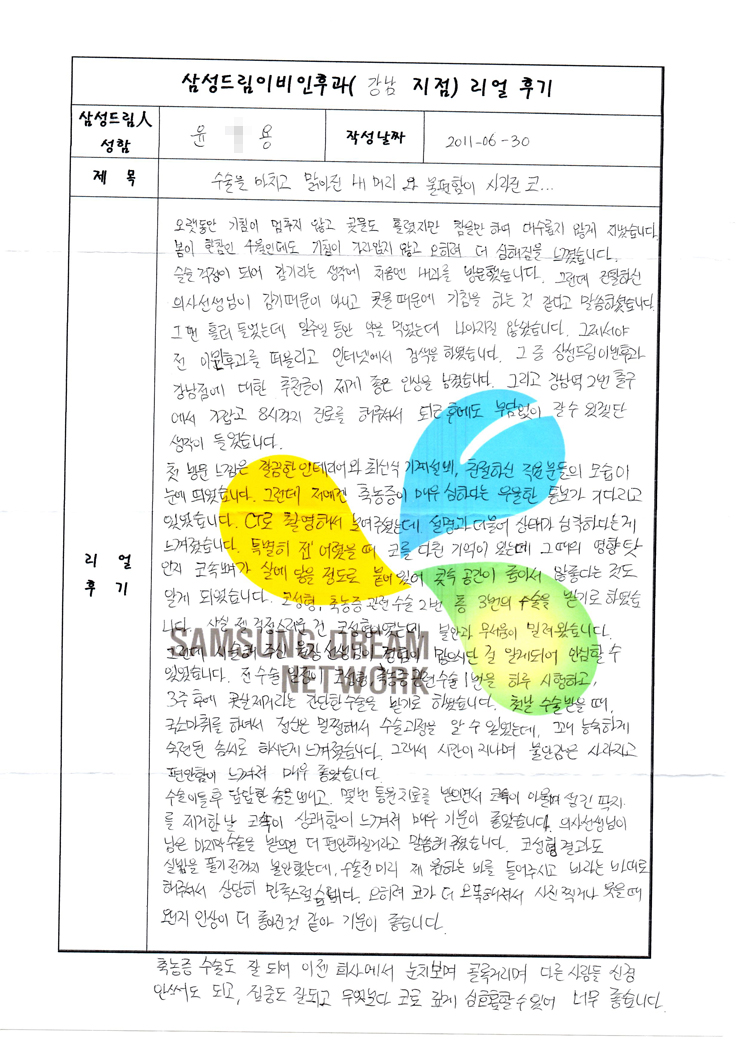 삼성드림이비인후과( 강남 지점) 리얼 후기
삼성드림人 성함
윤 용
작성날짜
2011-06-30
제 목
수술을 마치고 맑아진 내 머리와 불편함이 사라진 코...
리 얼 후 기
오랫동안 기침이 멈추지 않고 콧물도 흘렸지만 참을만 하여 대수롭지 않게 지냈습니다.
봄이 한참인 4월인데도 기침이 가라앉지 않고 오히려 더 심해짐을 느꼈습니다.
슬슬 걱정이 되어 감기라는 생각에 처음엔 내과를 방문했습니다. 그런데 친절하신
의사선생님이 감기때문이 아니고 콧물때문에 기침을 하는 것 같다고 말씀하셨습니다.
그땐 흘려 들었는데 일주일 동안 약을 먹었는데 나아지질 않았습니다. 그제서야
전 이비인후과를 떠올리고 인터넷에서 검색을 하였습니다. 그 중 삼성드림이비인후과
강남점에 대한 추천글이 제게 좋은 인상을 남겼습니다. 그리고 강남역 2번 출구
에서 가깝고 8시까지 진료를 해주셔서 퇴근 후에도 부담없이 갈 수 있겠단
생각이 들었습니다.
첫 방문 느낌은 깔끔한 인테리어와 최신식 기계설비, 친절하신 직원분들의 모습이
눈에 띄었습니다. 그런데 저에겐 축농증이 매우 심하다는 우울한 통보가 기다리고
있었습니다. CT로 촬영해서 보여주셨는데 설명과 더불어 상태가 심각하다는게
느껴졌습니다. 특별히 전 어렸을 때 코를 다친 기억이 있는데 그 때의 영향 탓
인지 코속뼈가 살에 닿을 정도로 붙어 있어 콧속 공간이 좁아서 안좋다는 것도
알게 되었습니다. 코성형, 축농증 관련 수술 2번 총 3번의 수술을 받기로 하였습
니다. 사실 전 걱정스러운 건 코성형이었는데 불안과 무서움이 밀려왔습니다.
그런데 시술해 주신 원장선생님이 경험이 많으시단 걸 알게되어 안심할 수
있었습니다. 전 수술 일정이 코성형, 축농증관련 수술 1번을 하루 시행하고,
3주 후에 콧살제거라는 간단한 수술을 받기로 하였습니다. 첫날 수술받을 때,
국소마취를 하여서 정신은 멀쩡해서 수술과정을 알 수 있었는데, 꽤나 능숙하게
숙련된 솜씨로 하시는게 느껴졌습니다. 그래서 시간이 지나며 불안감은 사라지고
편안함이 느껴져 매우 좋았습니다.
수술 이틀 후 답답한 솜을 빼내고, 몇번 통원치료를 받으면서 코속이 아물며 생긴 딱지
를 제거한 날 코속이 상쾌함이 느껴져 매우 기분이 좋았습니다. 의사선생님이
남은 마지막수술을 받으면 더 편안해질거라고 말씀해 주셨습니다. 코성형 결과도
실밥을 풀기 전까지 불안했는데, 수술전 미리 제 원하는 바를 들어주시고 바라는 바대로
해주셔서 상당히 만족스럽습니다. 오히려 코가 더 오똑해져서 사진 찍거나 웃을 때
왠지 인상이 더 좋아진것 같아 기분이 좋습니다.
축농증 수술도 잘 되어 이젠 회사에서 눈치보며 콜록거리며 다른 사람들 신경
안써도 되고, 집중도 잘되고 무엇보다 코로 깊게 심호흡할 수 있어 너무 좋습니다.
SAMSUNG DREAM
NETWORK